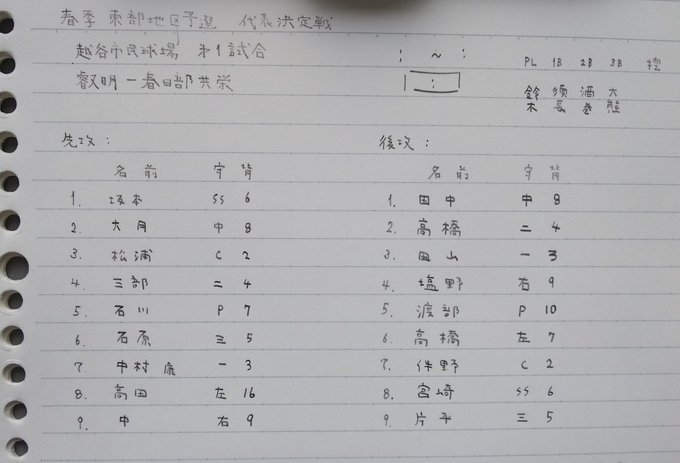 春季 東部地区予選 代表決定戦
越谷市民球場 第1試合
叡明ー春日部共栄
: ~ :
:
PL 1B 2B 3B 控
鈴 須 酒 大
木 長 巻 熊
先攻:
名前 守 背
1. 坂本 SS 6
2. 大月 中 8
3. 松浦 C 2
4. 三部 二 4
5. 石川 P 7
6. 石原 三 5
7. 中村廉 一 3
8. 高田 左 16
9. 中 右 9
後攻:
名前 守 背
1. 田中 中 8
2. 高橋 二 4
3. 田山 一 3
4. 塩野 右 9
5. 渡部 P 10
6. 高橋 左 7
7. 伴野 C 2
8. 宮崎 SS 6
9. 片平 三 5